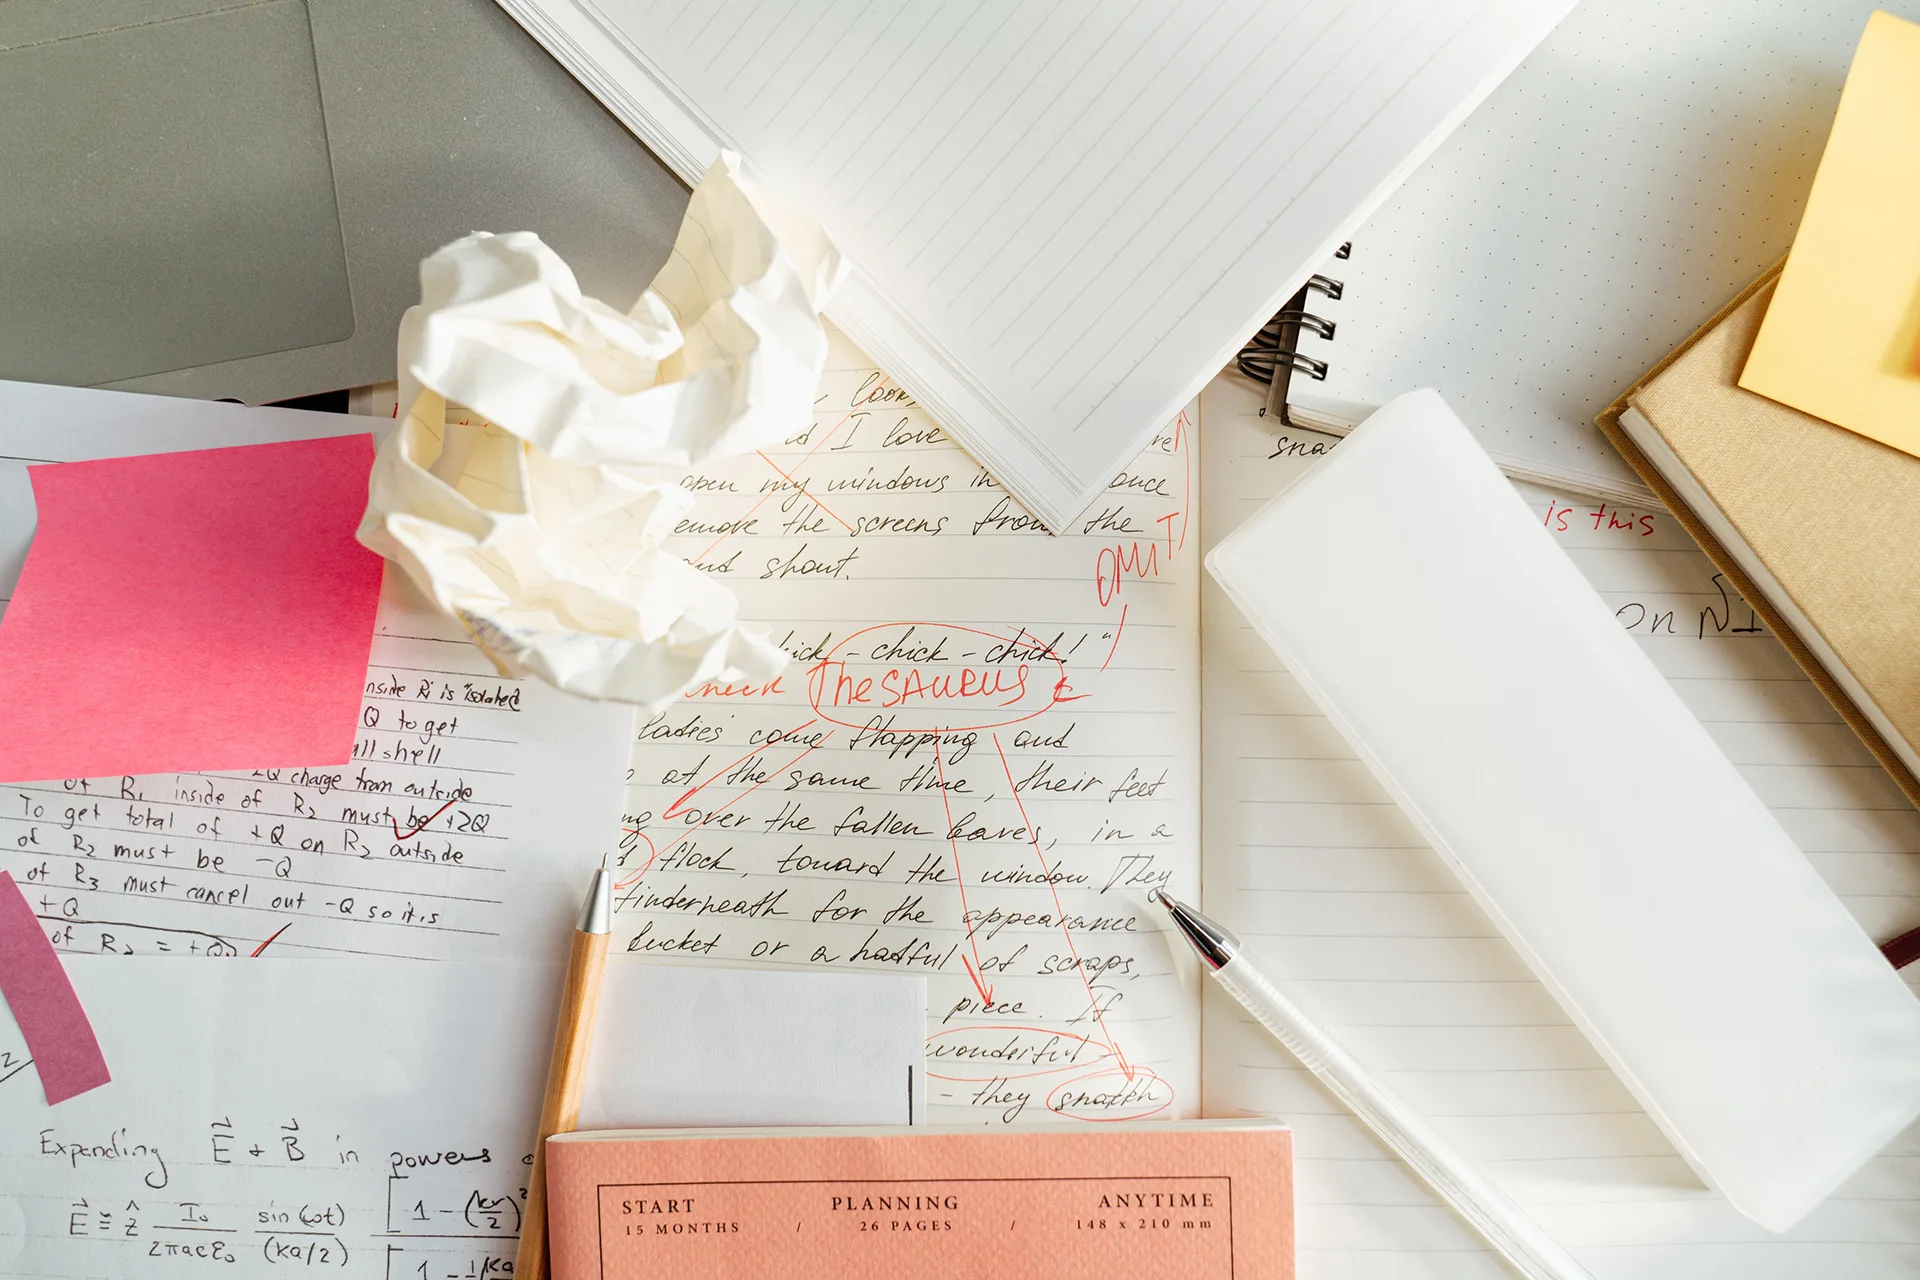 I love
open my windows in once
the screens from the
and shout.
OUT
- chick - chick!"
check THESAURUS
ladies come flapping and
at the same time, their feet
over the fallen leaves, in a
flock, toward the window. They
underneath for the appearance
bucket or a hatful of scraps,
piece. If
wonderful -
- they snatch
is this
on
inside Ri is "isolated
Q to get
shell
2Q charge from outside
of R₁ inside of R₂ must be +2Q
To get total of +Q on R₂ outside
of R₂ must be -Q
of R₃ must cancel out -Q so it is
+Q
of R₂ = +Q
2
Expanding E⃗ + B⃗ in powers
E⃗ ≅ ẑ I₀/2πacε₀ sin(ωt)/(ka/2) [1 - (kr/2)²
[1 - 1/ (ka
START PLANNING ANYTIME
15 MONTHS / 26 PAGES / 148 x 210 mm